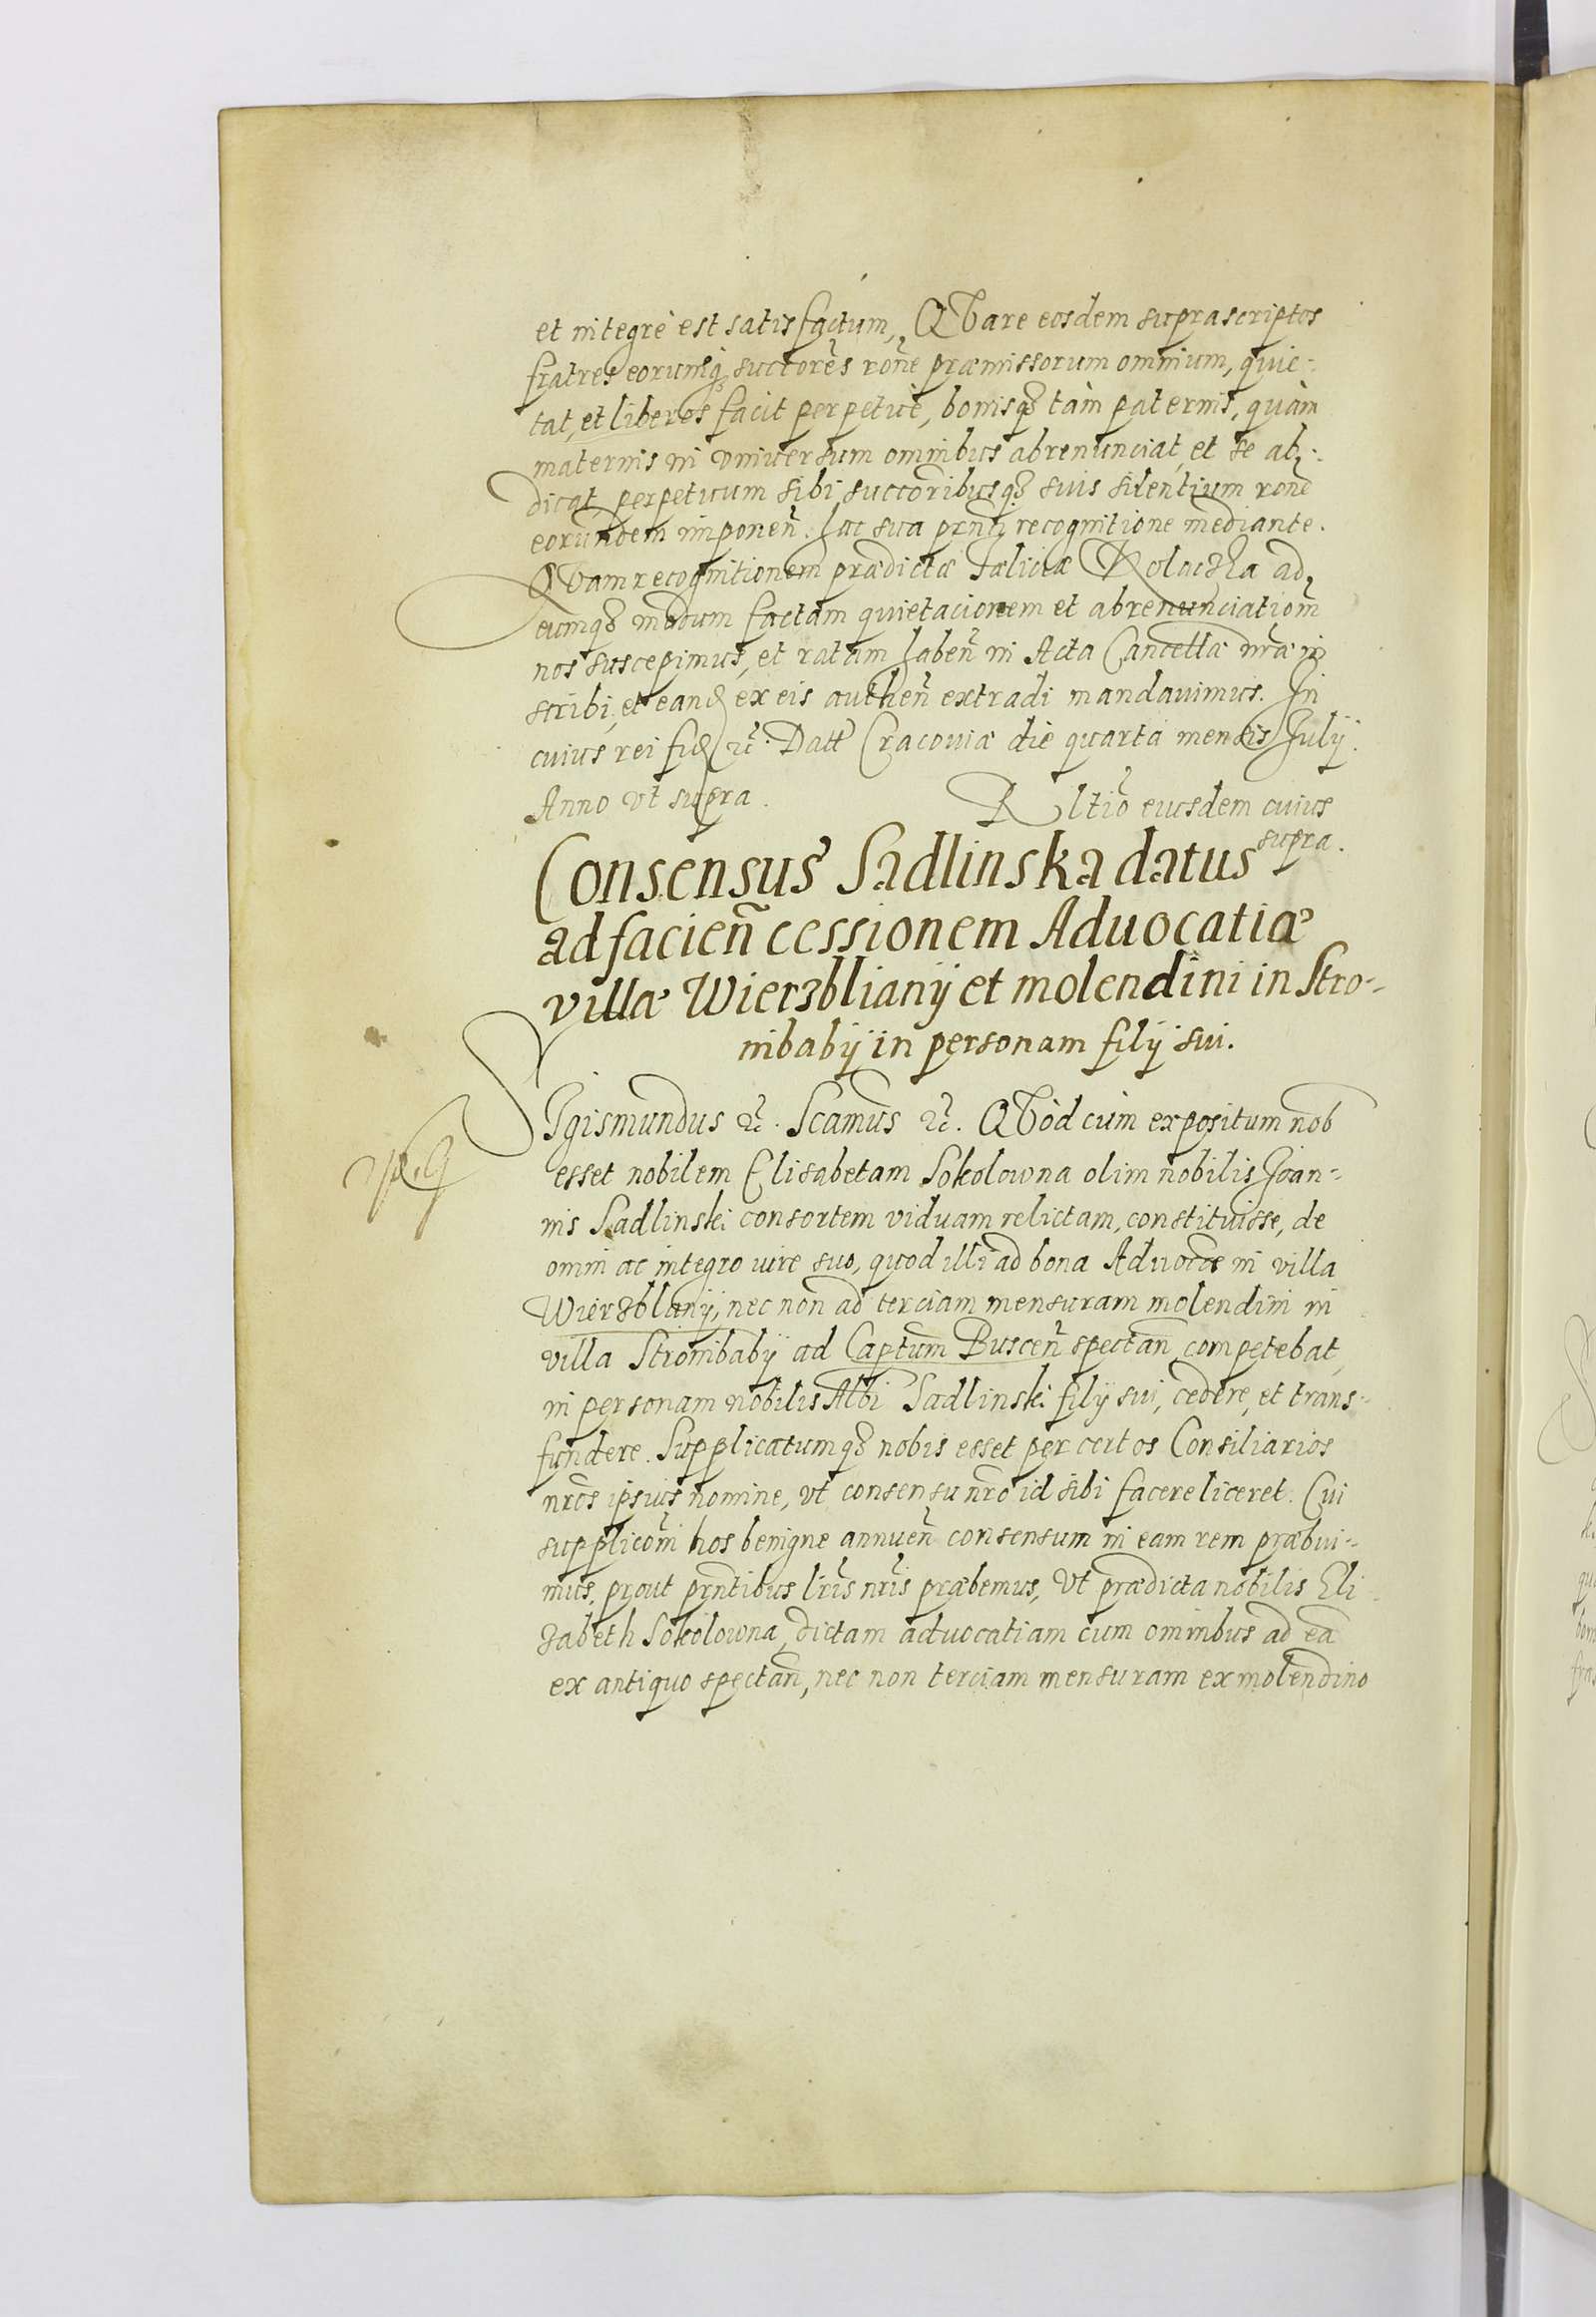 et integrè est satisfactum, QVare eosdem suprascriptos
fratres eorumq₃ succorēs ronē præmissorum omnium, quie-
tat, et liberos facit perpetuè, bonisq₃ tàm paternis, quàm
maternis in vniuersum omnibus abrenunciat, et se ab-
dicat, perpetuum sibi succoribusq₃ suis silentium ronē
eorundem imponen̄. hac sua prn̄ti recognitione mediante.
QVam recognitionem prædictæ fælicia ad
eumq₃ modum factam quietacionem et abrenunciationm̄
nos suscepimus, et ratam haben̄ in Acta Cancellæ nr̄æ in
scribi, et eand̄ ex eis authen̄ extradi mandauimus. In
cuius rei fid̄ &c̄. Datt Cracouiæ die quarta mensis Iulij.
Anno vt supra. Rltio eiusdem cuius
supra.
Consensus Sadlinska datus
ad facien̄ cessionem Aduocatiæ
villæ Wierzblianij et molendini in Stro-
nibabij in personam filij sui.
SIgismundus &c̄. Scamus &c̄. QVòd cùm expositum nob
esset nobilem Elisabetam Sokolowna olim nobilis Ioan-
nis Sadlinski consortem viduam relictam, constituisse, de
omni ac integro iure suo, quod illi ad bona Aduocae in villa
Wierzblanij, nec non ad terciam mensuram molendini in
villa Stronibabij ad Captum Buscen̄ spectan̄ competebat,
in personam nobilis Albi Sadlinski filij sui, cedere, et trans-
fundere. Supplicatumq₃ nobis esset per certos Consiliarios
nr̄os ipsius nomine, vt consensu nr̄o id sibi facere liceret. Cui
suppliconi nos benigne annuen̄ consensum in eam rem præbui-
mus, prout prn̄tibus lr̄is nr̄is præbemus, Vt prædicta nobilis Eli
zabeth Sokolowna, dictam aduocatiam cum omnibus ad eā
ex antiquo spectan̄, nec non terciam mensuram ex molendino